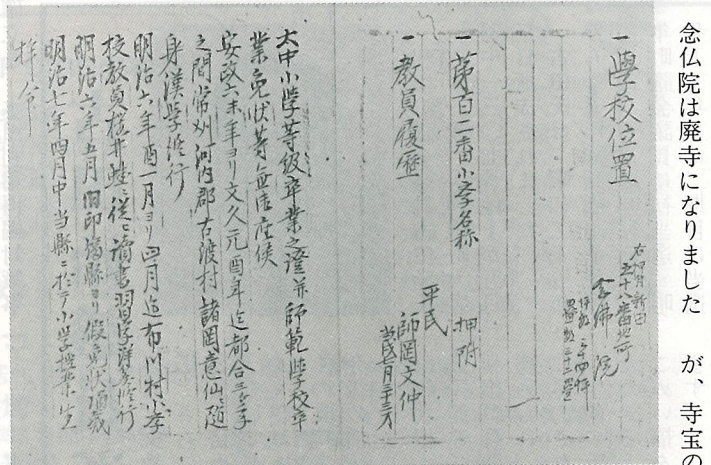 念仏院は廃寺になりました が、寺宝の
一 學校位置
右押付新田
五十八番地町
念佛院
坪数 二十四坪
畳数 三十二畳
一 第百二番小学名称 押附
一 教員履歴
平民
師岡文仲
大中小學等級卒業之證并師範學校卒
業免状等無御座候
安政六未年ヨリ文久元酉年迄都合三ヶ年
之間常州河内郡古渡村諸岡意仙ニ随
身漢學修行
明治六年酉一月ヨリ四月迄布川村小学
校教員櫻井 ニ従ヒ讀書習字算筆修行
明治六年五月旧印旛縣ヨリ假免状頂戴
明治七年四月中当縣ニ於テ小学授業生
拝命